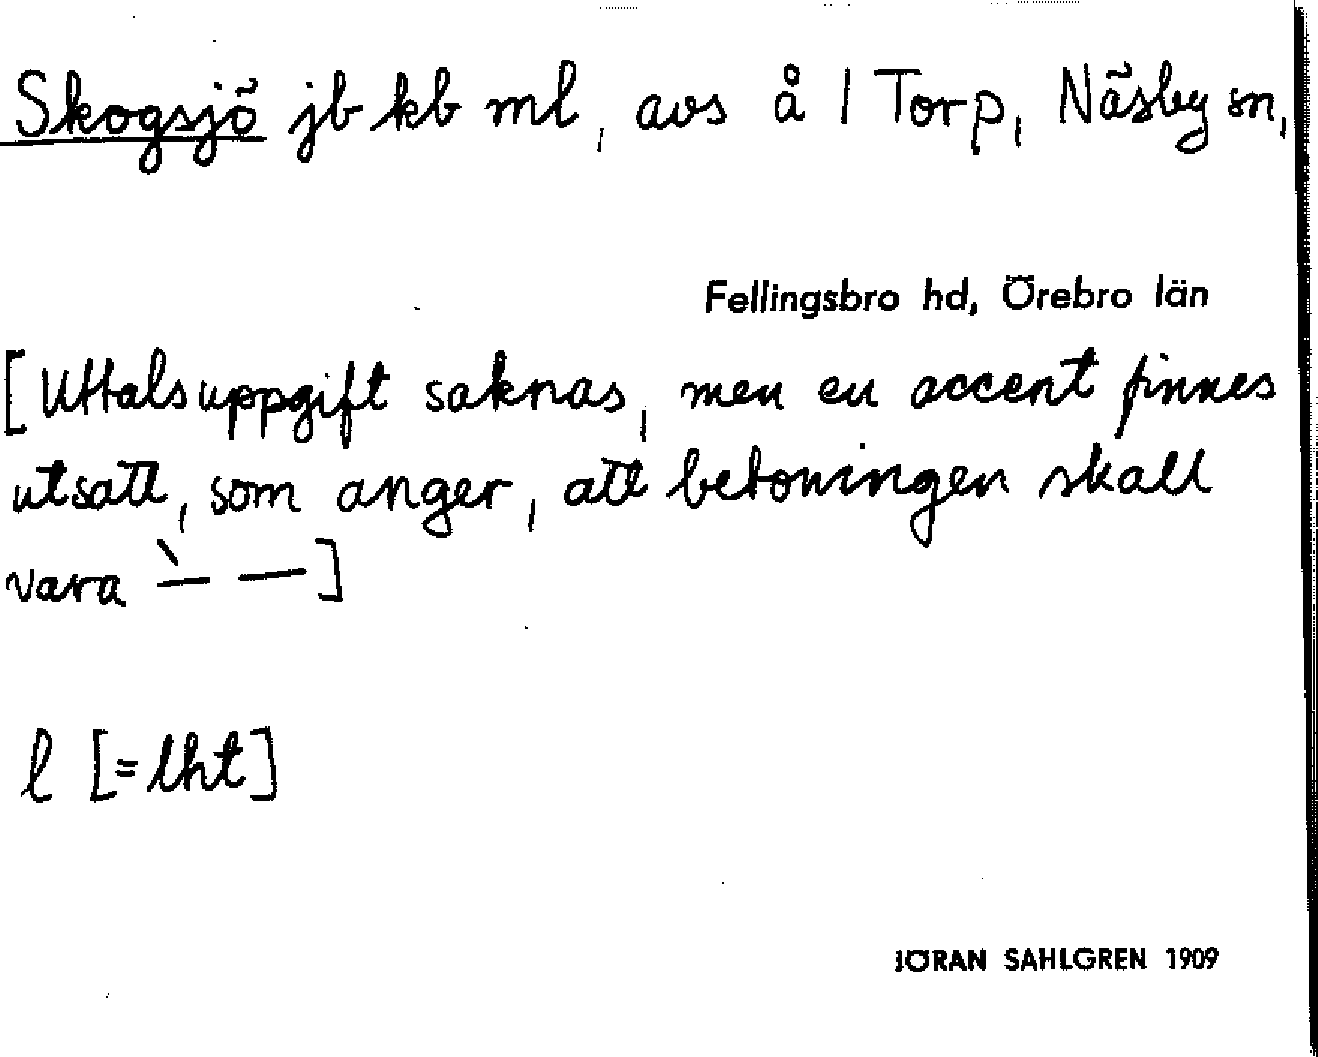 Skogsjö jb kb ml, avs å 1 Torp, Näsby sn,
Fellingsbro hd, Örebro län
[Uttalsuppgift saknas, men en accent finnes
utsatt, som anger, att betoningen skall
vara –̀ –]
l [=lht]
JÖRAN SAHLGREN 1909